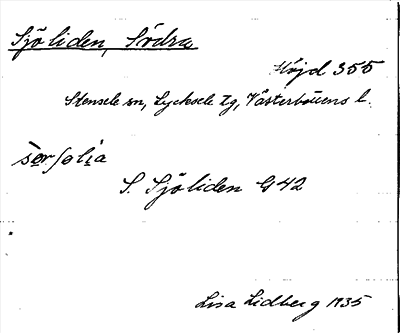 Sjöliden, Södra
Höjd 355
Stensele sn, Lycksele tg, Västerbottens l.
sør ſølia
S. Sjöliden G42
Lisa Lidberg 1935